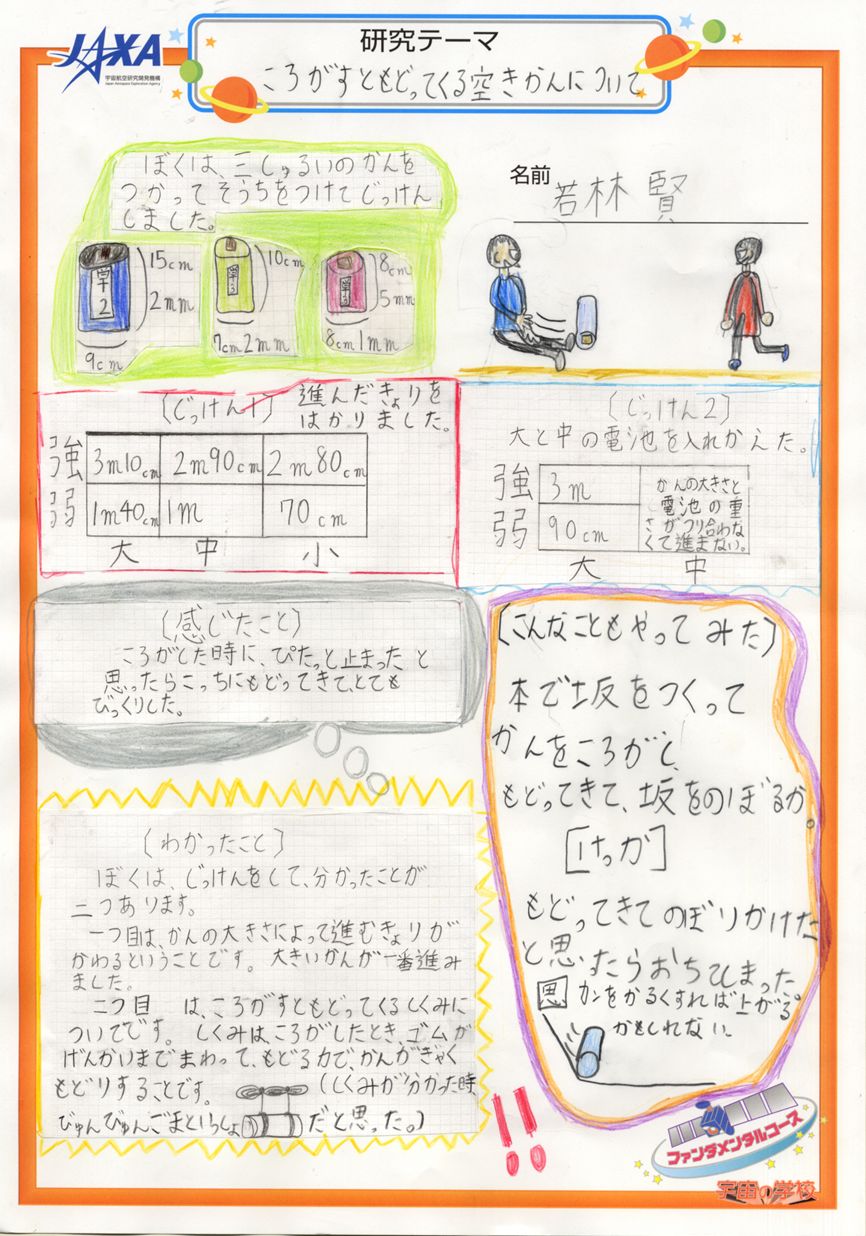 JAXA
宇宙航空研究開発機構
Japan Aerospace Exploration Agency
研究テーマ
ころがすともどってくる空きかんについて
名前 若林 賢
ぼくは、三しゅるいのかんを
つかってそうちをつけてじっけん
しました。
15cm
2mm
9cm
10cm
7cm2mm
8cm
5mm
8cm1mm
(じっけん1) 進んだきょりを
はかりました。
強 3m10cm 2m90cm 2m80cm
弱 1m40cm 1m 70cm
大 中 小
(じっけん2)
大と中の電池を入れかえた。
強 3m
弱 90cm
かんの大きさと
電池の重
さがつり合わな
くて進まない。
大 中
(感じたこと)
ころがとた時に、ぴたっと止まったと
思ったらこっちにもどってきて、とても
びっくりした。
(こんなこともやってみた)
本で坂をつくって
かんをころがし
もどってきて、坂をのぼるか。
[けっか]
もどってきてのぼりかけた
と思ったらおちてしまった。
思 カンをかるくすれば上がる
かもしれない。
(わかったこと)
ぼくは、じっけんをして、分かったことが
二つあります。
一つ目は、かんの大きさによって進むきょりが
かわるということです。大きいかんが一番進み
ました。
二つ目 は、ころがすともどってくるしくみに
ついてです。しくみは、ころがしたとき、ゴムが
げんかいまでまわって、もどる力で、かんがぎゃく
もどりすることです。
(しくみが分かった時、
びゅんびゅんごまといっしょ
だと思った。)
!!
ファンダメンタルコース
宇宙の学校